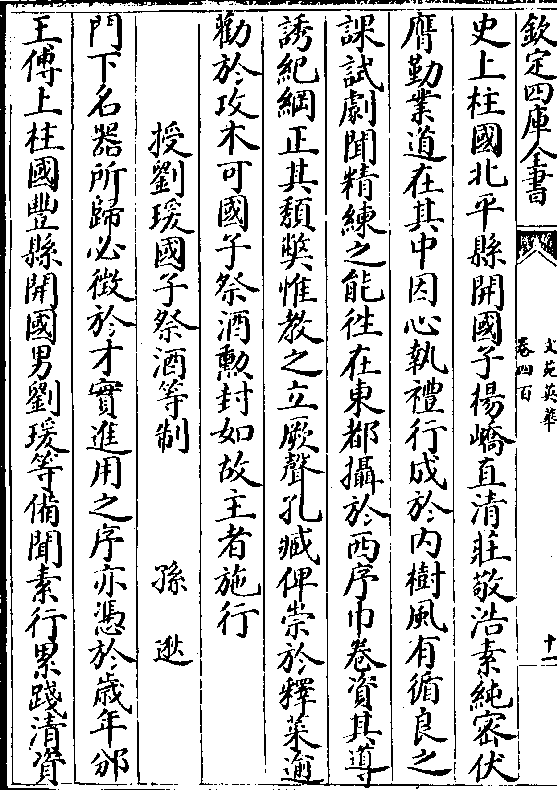 欽定四庫全書
文苑英華
卷四百
十一
史上柱國北平縣開國子楊嶠直清莊敬浩素純密伏
膺勤業道在其中因心執禮行成於内樹風有循良之
課試劇聞精練之能徃在東都攝於西序巾卷資其導
誘紀綱正其頽獘惟教之立厥聲孔臧俾崇於釋菜逾
勸於攻木可國子祭酒勲封如故主者施行
授劉瑗國子祭酒等制 孫逖
門下名器所歸必徴於才實進用之序亦憑於歳年邠
王傅上柱國豐縣開國男劉瑗等備聞素行累踐清資